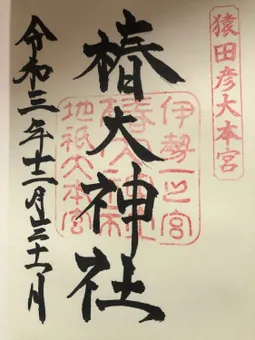 猿田彦大本宮
伊勢一之宮
椿大神社
地祇大本宮
令和三年十二月三十一日